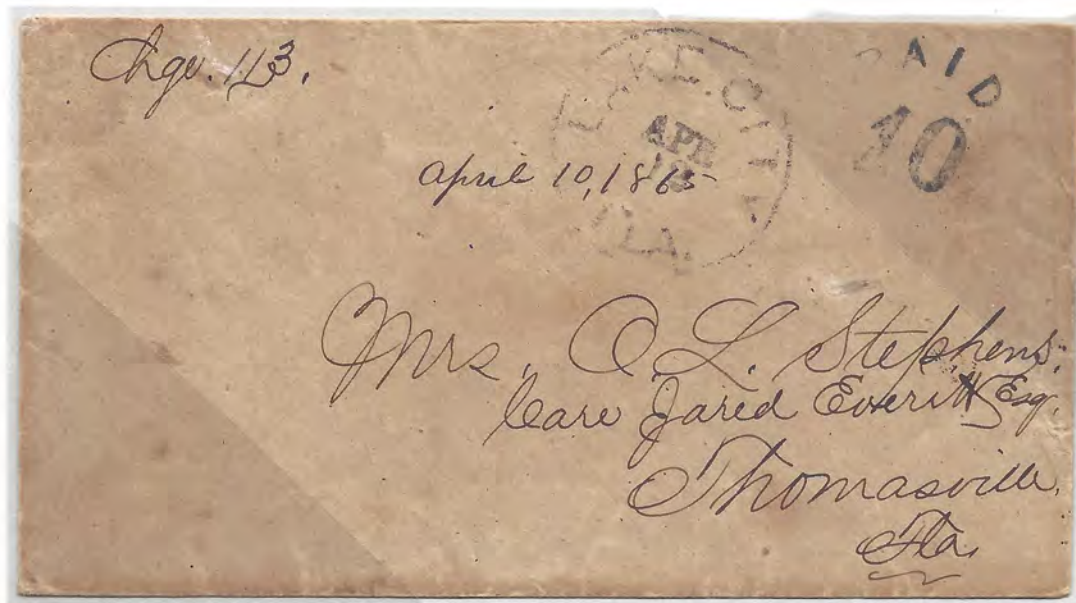 Chge. 113.
LAKE.CITY.
APR
FLA.
PAID
10
april 10, 1865
Mrs. O L. Stephens.
Care Jared Everitt Esq.
Thomasville,